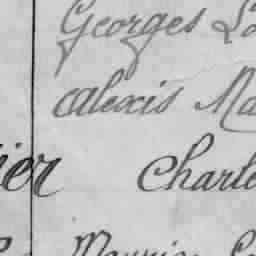 Georges Lo
Alexis Ma
ier Charle
Maurice Lo